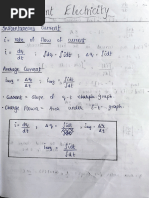 nt Electricity
Instantaneous Current
i = rate of flow of current
i = dq/dt ; ∫dq = ∫idt ; Δq = ∫idt
Average Current
Iavg = Δq/Δt ; Iavg = ∫idt/∫dt
- Current = slope of q-t charge graph
- Charge flowen = Area under i-t graph
i = dq/dt ; Δq = ∫idt ; iavg = ∫idt/∫dt
iavg = Δq/Δt